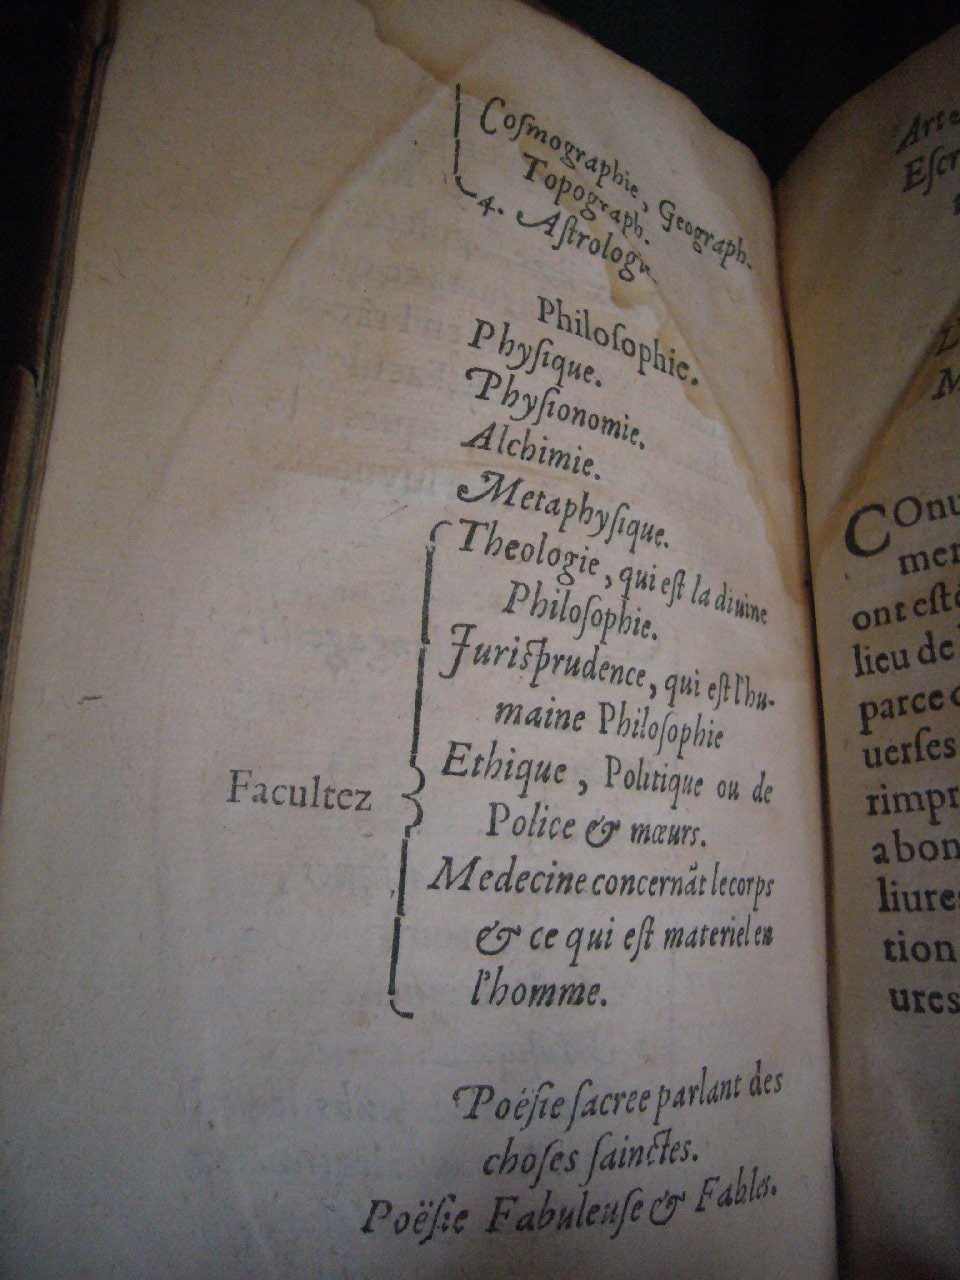 Coſmographie, Geograph.
Topograph.
4. Aſtrolog
Philoſophie.
Phyſique.
Phyſionomie.
Alchimie.
Metaphyſique.
Theologie, qui eſt la diuine
Philoſophie.
Juriſprudence, qui eſt l'hu-
maine Philoſophie
Ethique, Politique ou de
Police & mœurs.
Facultez
Medecine concernãt le corps
& ce qui eſt materiel en
l'homme.
Poëſie ſacree parlant des
choſes ſainctes.
Poëſie Fabuleuſe & Fables.
Art
Eſcr
L
M
COnu
mer
ont eſté
lieu de
parce
uerſes
rimpr
abon
liures
tion
ures